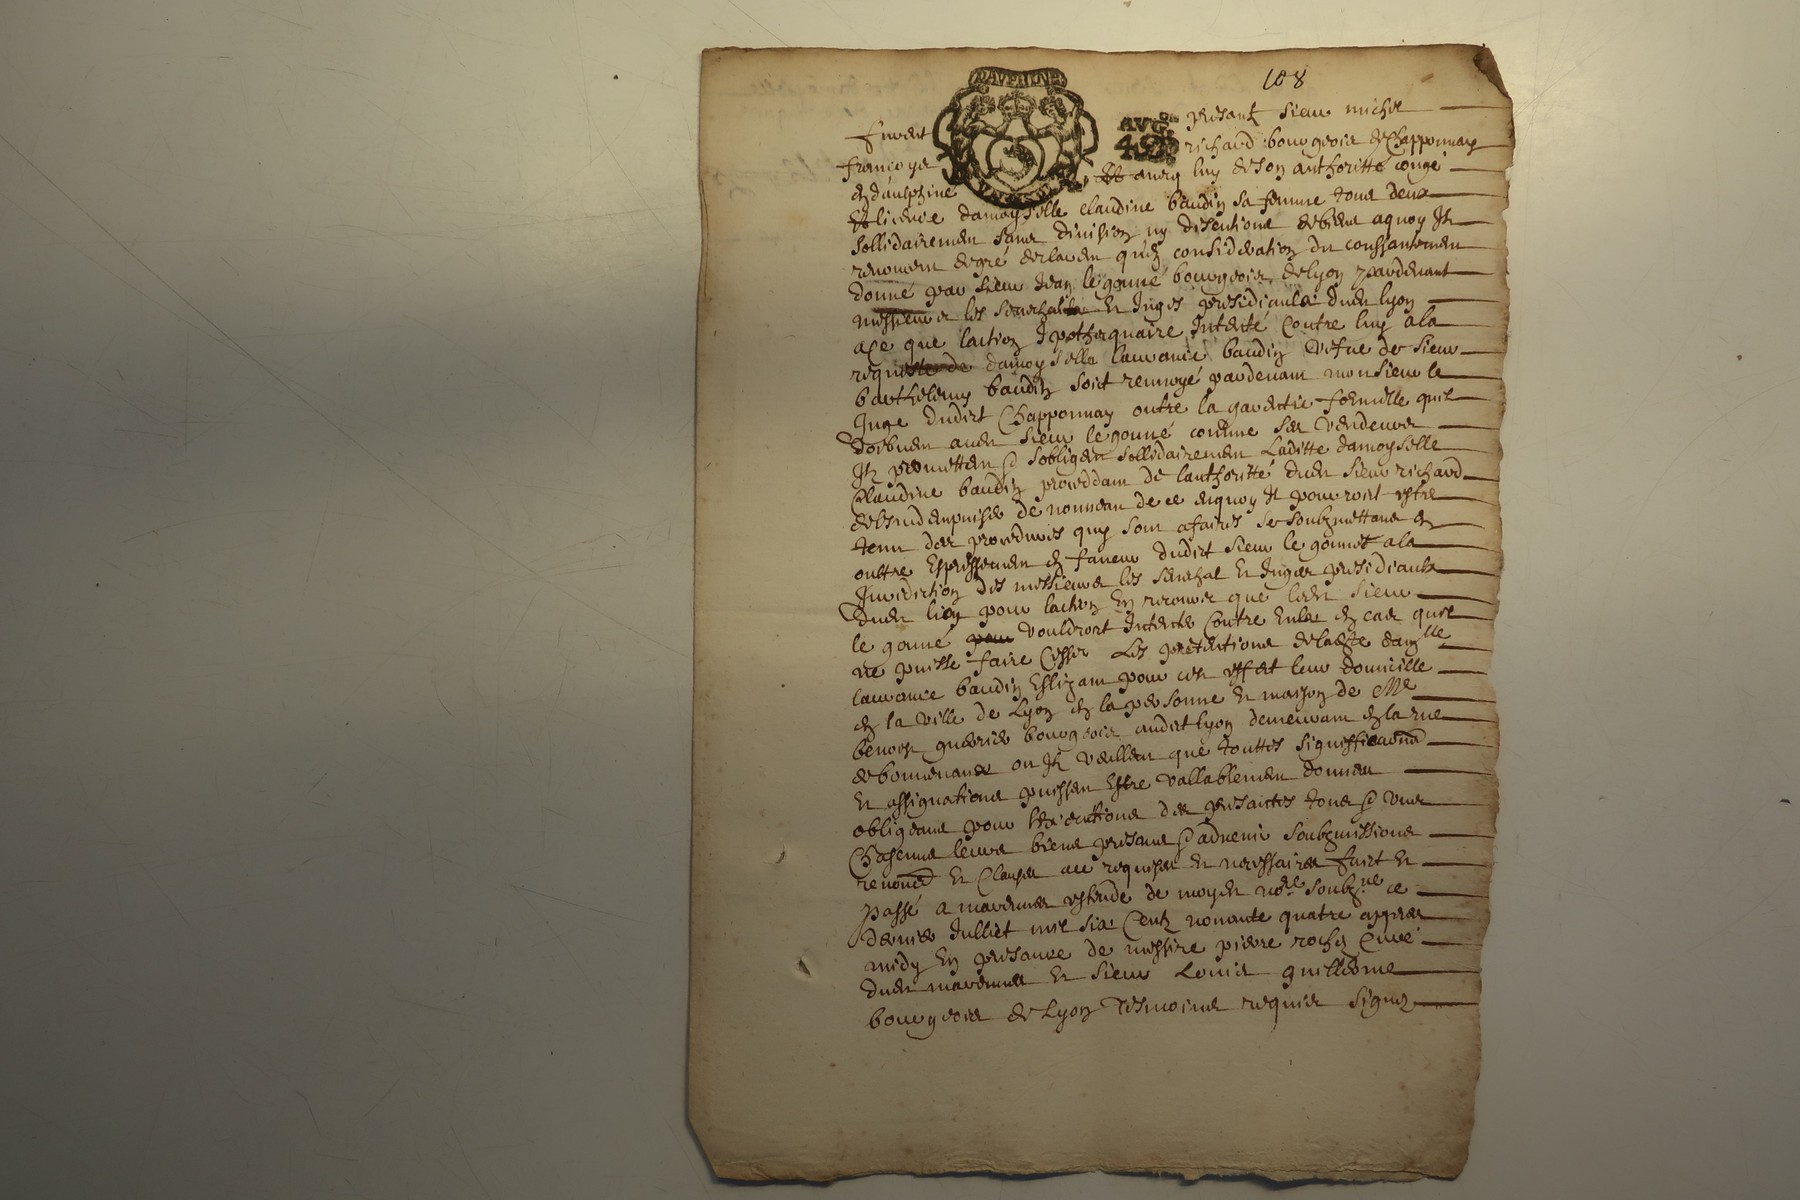 108
furent presant sieur michel
françoyes richard bourgeois de Chapponnay
en dauphine Et avecq luy de son authoritté congé
Et licence damoyselle claudine baudin sa femme tous deux
sollidairement sans division ny disentions de biens a quoy Ilz
renoncent de gré lesquels en consideration du consantement
donné par sieur Jean le gonné bourgeois de lyon pardevant
messieurs les Seneschal et Juges presidiaulx dudit lyon
a ce que laction Ipothequaire Intenté Contre luy a la
requeste de damoyselle laurance baudin vefve de sieur
barthelemy baudin soit renvoyé pardevant monsieur le
Juge dudict Chapponnay outre la garentie formelle quil
doibvent audit sieur le gonné comme ses vendeurs
Ilz promettent & sobligent sollidairement Laditte damoyselle
Claudine baudin proceddant de lauthoritté dudit sieur richard
de lindempniser de nouveau de ce enquoy Il pourroit estre
tenu des procedures quy sont afaires se soubzmettans en
oultre Expressement en faveur dudict sieur le gonné a la
Jurediction des messieurs les Senechal et Juges presidiaulx
dudit lion pour laction en recours que ledit sieur
le gonné pour vouldroit Intenter Contre Eulx en cas quil
ne puisse faire Cesser Les pretentions de ladte damlle
laurance baudin Eslizant pour cet effet leur domicille
en la ville de Lyon en la personne et maison de Me
benoist guerrier bourgeois audit lyon demeurant en la rue
de bonnevaux ou Ilz veullent que touttes significaons
et assignations puissent Estre vallablement donnees
obligeans pour lexecutions des presantes tous & uns
Chascuns leurs biens presans & advenir soubzmissions
renonçons et Clauses ace requises et necessaires fait et
passé a marennes estude de moyd nore soubzne ce
dernier Julliet mil six Centz nonante quatre appres
midy En presance de messire pierre roche Curé
dudit marennes et sieur Louis guilleorme
bourgeois de Lyon tesmoins requis signez